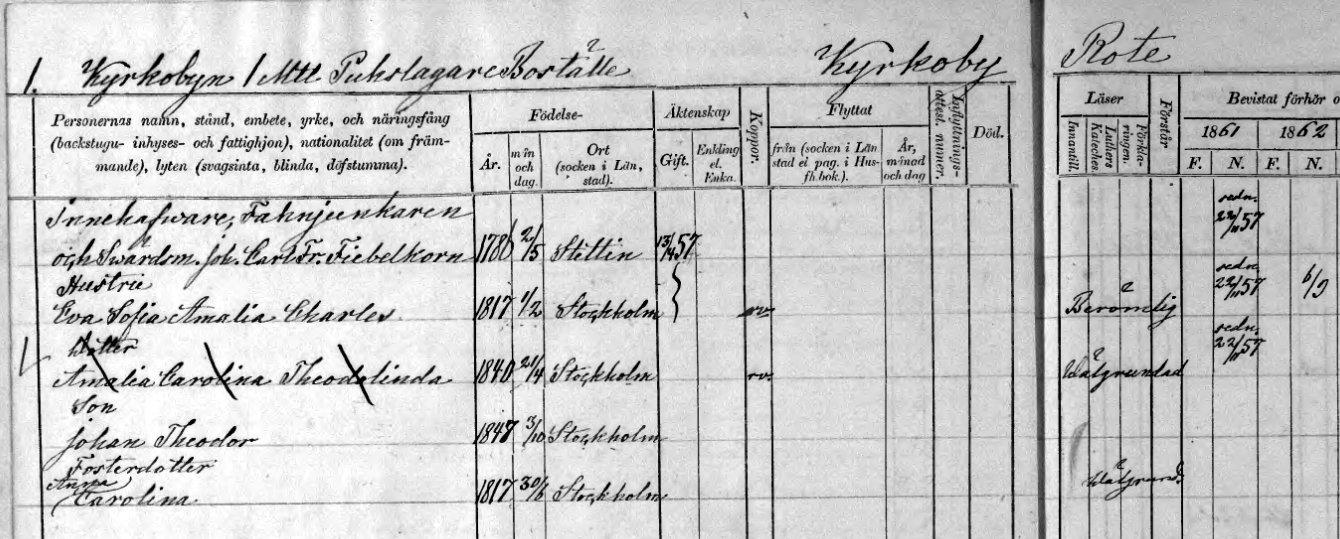 1. Kyrkobyn 1 Mtl Pukslagare Boställe Kyrkoby Rote
Personernas namn, stånd, embete, yrke, och näringsfång
(backstugu- inhyses- och fattighjon), nationalitet (om främ-
mande), lyten (svagsinta, blinda, döfstumma).
Födelse-
År.
mån
och
dag.
Ort
(socken i Län,
stad).
Äktenskap
Gift.
Enkling
el.
Enka.
Koppor.
Flyttat
från (socken i Län
stad el pag. i Hus-
fh.bok.).
År,
månad
och dag
Inflyttnings-
attest. numer.
Död.
Läser
Innantill.
Luthers
Kateches.
Förkla-
ringen.
Förstår
Bevistat förhör o
1861 1862
F. N. F. N.
Innehafware, Fahnjunkaren
och Swärdsm. Joh. Carl Fr. Fiebelkorn 1786 2/5 Stettin 13/4 57 sedn. 22/11 57
Hustru
Eva Sofia Amalia Charles. 1817 1/2 Stockholm rv. Berömlig sedn. 22/11 57 6/9
Dotter
Amalia Carolina Theodolinda 1840 24/4 Stockholm rv. Wälgrundad sedn. 22/11 57
Son
Johan Theodor 1847 3/10 Stockholm
Fosterdotter
Anna
Carolina. 1817 30/6 Stockholm Wälgrund.